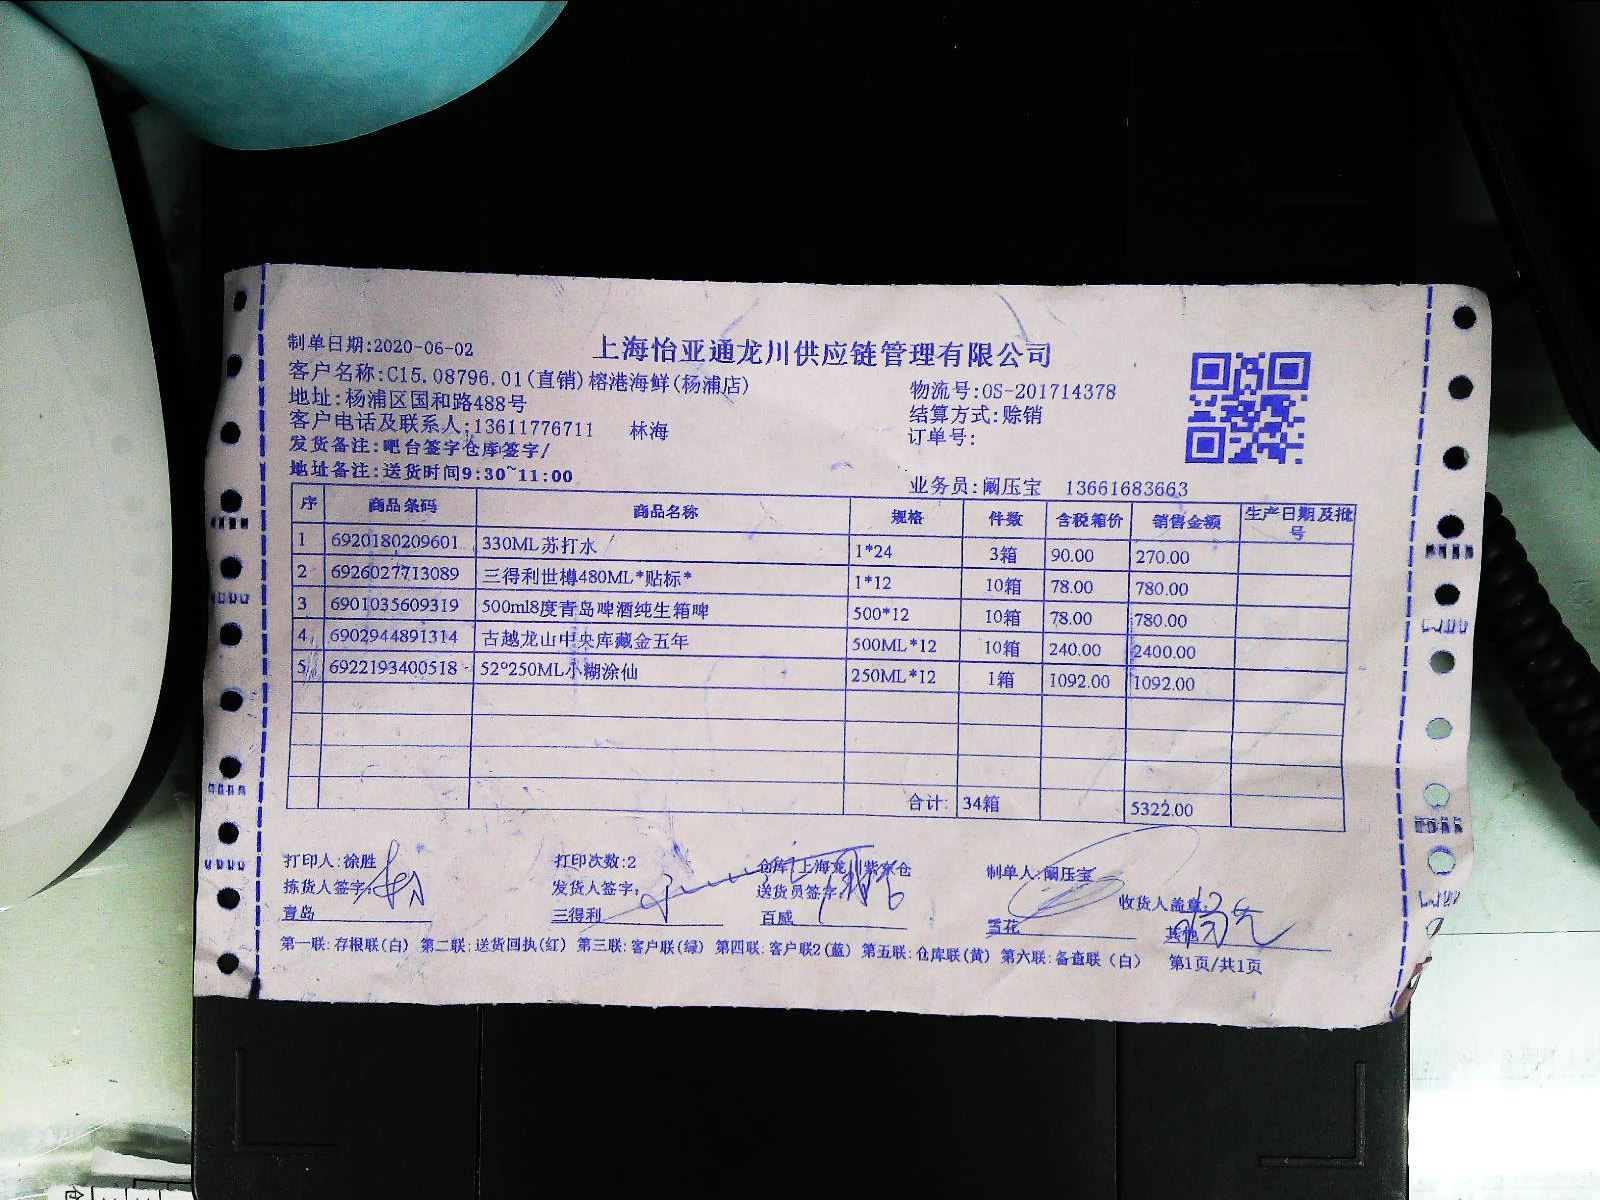 上海怡亚通龙川供应链管理有限公司
制单日期:2020-06-02
客户名称:C15.08796.01(直销)榕港海鲜(杨浦店) 物流号:OS-201714378
地址:杨浦区国和路488号 结算方式:赊销
客户电话及联系人:13611776711 林海 订单号:
发货备注:吧台签字仓库签字/
地址备注:送货时间9:30~11:00 业务员:阚压宝 13661683663
序 商品条码 商品名称 规格 件数 含税箱价 销售金额 生产日期及批号
1 6920180209601 330ML苏打水 1*24 3箱 90.00 270.00
2 6926027713089 三得利世樽480ML*贴标* 1*12 10箱 78.00 780.00
3 6901035609319 500ml8度青岛啤酒纯生箱啤 500*12 10箱 78.00 780.00
4 6902944891314 古越龙山中央库藏金五年 500ML*12 10箱 240.00 2400.00
5 6922193400518 52°250ML小糊涂仙 250ML*12 1箱 1092.00 1092.00
合计: 34箱 5322.00
打印人:徐胜 打印次数:2 仓库:上海龙川紫东仓 制单人:阚压宝
拣货人签字: 发货人签字: 送货员签字: 收货人盖章:
青岛 三得利 百威 雪花 其他
第一联:存根联(白) 第二联:送货回执(红) 第三联:客户联(绿) 第四联:客户联2(蓝) 第五联:仓库联(黄) 第六联:备查联(白) 第1页/共1页